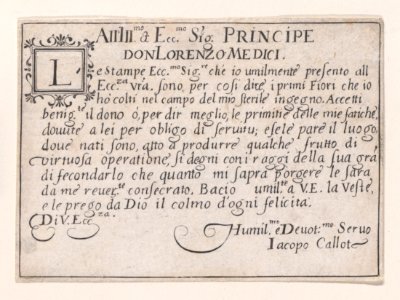 All Ill.mo et Ecc.mo Sig. PRINCIPE
DON LORENZO MEDICI.
Le Stampe Ecc.mo Sig.re che io umilmente presento all
Ecc.za vra. sono, per cosi dire, i primi Fiori che io
ho colti nel campo del mio sterile ingegno. Accetti
benig.te il dono ó, per dir meglio, le primitie delle mie fatiche,
douute a lei per obligo di seruitu; e se le pare il luogo,
doue nati sono, atto a produrre qualche frutto, di
virtuosa operatione, si degni con i raggi della sua gra.
di fecondarlo che quanto mi sapra porgere le sara
da me reuer.te consecrato. Bacio umil.te a V.E. la Veste,
e le prego da Dio il colmo d'ogni felicita.
Di V. Ecc.za
Humil.mo e Deuot.mo Seruo
Iacopo Callot